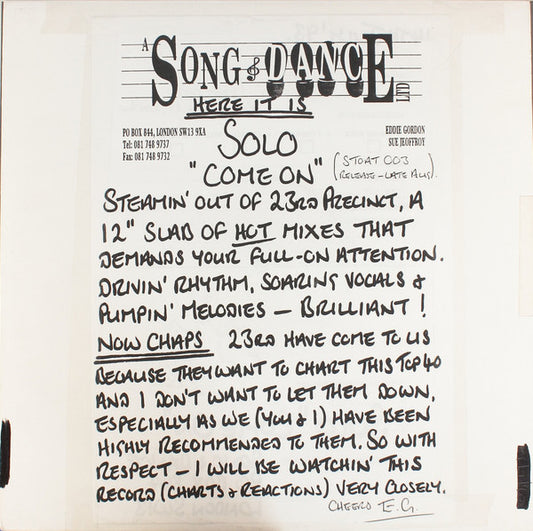 A SONG & DANCE LTD
HERE IT IS
PO BOX 844, LONDON SW13 9XA
Tel: 081 748 9737
Fax: 081 748 9732
EDDIE GORDON
SUE JEOFFROY
SOLO
"COME ON" (STOAT 003
RELEASE - LATE AUG).
STEAMIN' OUT OF 23RD PRECINCT, A
12" SLAB OF HOT MIXES THAT
DEMANDS YOUR FULL-ON ATTENTION.
DRIVIN' RHYTHM, SOARING VOCALS &
PUMPIN' MELODIES – BRILLIANT!
NOW CHAPS 23RD HAVE COME TO US
BECAUSE THEY WANT TO CHART THIS TOP 40
AND I DON'T WANT TO LET THEM DOWN,
ESPECIALLY AS WE (YOU & I) HAVE BEEN
HIGHLY RECOMMENDED TO THEM. SO WITH
RESPECT – I WILL BE WATCHIN' THIS
RECORD (CHARTS & REACTIONS) VERY CLOSELY.
CHEERS E.G.